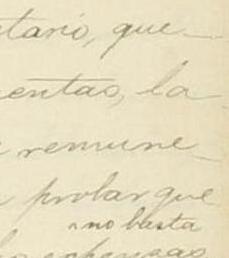 tario, que
entas, la
remune
probar que
no basta